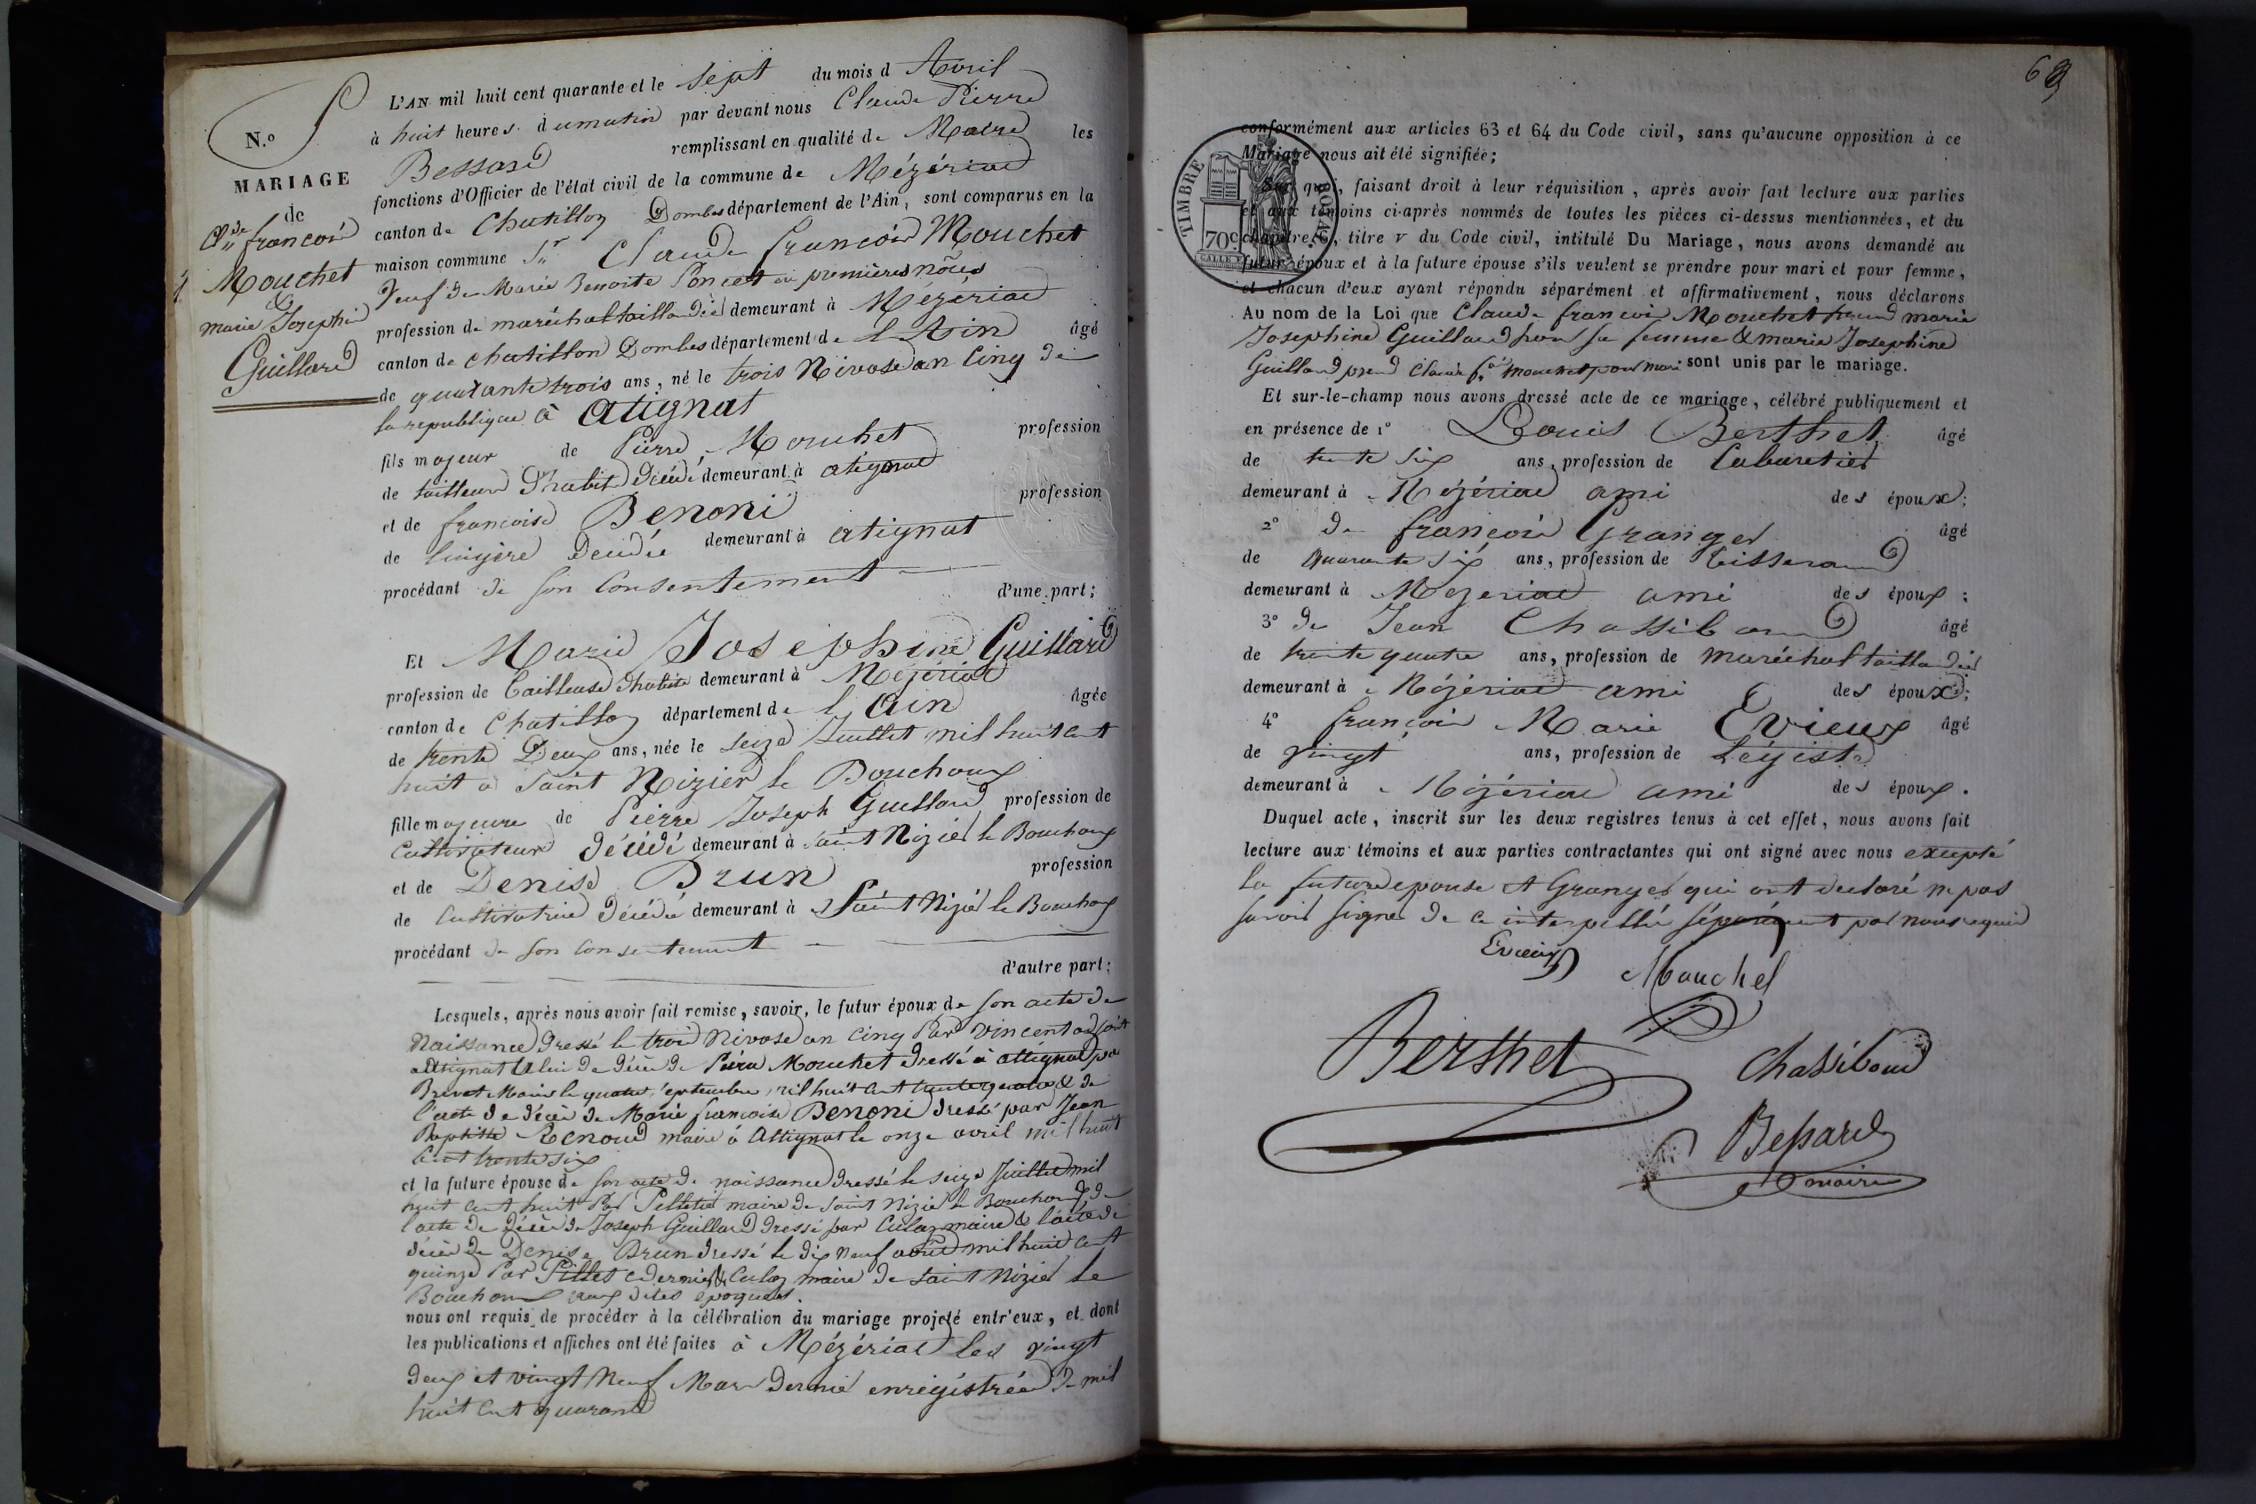 N.º
MARIAGE
de
Cl.de françois
Mouchet
&
marie Josephine
Guillard
L'AN mil huit cent quarante et le sept du mois d Avril
à huit heures du matin par devant nous Claude Pierre
Bessard remplissant en qualité de Maire les
fonctions d'Officier de l'état civil de la commune de Mézériat
canton de Chatillon Dombes département de l'Ain, sont comparus en la
maison commune Sr Claude françois Mouchet
Veuf de Marie Benoite Poncet en premières nôces
profession de maréchal taillandier demeurant à Mézériat
canton de chatillon Dombes département de l'Ain âgé
de quarante trois ans, né le trois Nivose an Cinq de
la republique à attignat
fils majeur de Pierre Mouchet profession
de tailleur d'habits Décédé demeurant à atignat
et de françoise Benoni profession
de lingère Décédée demeurant à atignat
procédant de son Consentement d'une part;
Et Marie Josephine Guillard
profession de tailleuse d'habits demeurant à Mézériat
canton de Chatillon département de l'Ain âgée
de trente Deux ans, née le seize Juillet mil huit cent
huit à Saint Nizier le Bouchoux
fille majeure de Pierre Joseph Guillard profession de
Cultivateur décédé demeurant à saint Nizier le Bouchoux
et de Denise Brun profession
de Cultivatrice décédée demeurant à Saint Nizier le Bouchoux
procédant de son consentement
d'autre part;
Lesquels, après nous avoir fait remise, savoir, le futur époux de son acte de
Naissance dressé le trois Nivose an Cinq Par Vincent adjoint
attignat celui de décès de Pierre Mouchet dressé à attignat par
Brevet Maire le quatre septembre mil huit cent & de
l'acte de décès de Marie françoise Benoni dressé par Jean
Baptiste Renoud maire à Attignat le onze avril mil huit
cent trente six
et la future épouse de son acte de naissance dressé le seize Juillet mil
huit cent huit Par Pelletier maire de saint Nizier le Bouchoux & de
l'acte de décès de Joseph Guillard dressé par Culaz maire & l'acte de
décès de Denise Brun dressé le dix neuf août mil huit cent
quinze Par Pillet & Culaz maire de saint Nizier le
Bouchoux aux dites epoques.
nous ont requis de procéder à la célébration du mariage projeté entr'eux, et dont
les publications et affiches ont été faites à Mézériat les vingt
deux et vingt Neuf Mars dernier enregistrées de mil
huit cent quarante
conformément aux articles 63 et 64 du Code civil, sans qu'aucune opposition à ce
Mariage nous ait été signifiée;
Sur quoi, faisant droit à leur réquisition, après avoir fait lecture aux parties
et aux témoins ci-après nommés de toutes les pièces ci-dessus mentionnées, et du
chapitre 6, titre v du Code civil, intitulé Du Mariage, nous avons demandé au
futur époux et à la future épouse s'ils veulent se prendre pour mari et pour femme,
et chacun d'eux ayant répondu séparément et affirmativement, nous déclarons
Au nom de la Loi que Claude françois Mouchet prend marie
Josephine Guillard pour sa femme & marie Josephine
Guillard prend Claude f.ois mouchet pour mari sont unis par le mariage.
Et sur-le-champ nous avons dressé acte de ce mariage, célébré publiquement et
en présence de 1º Louis Berthet âgé
de trente six ans, profession de Cabaretier
demeurant à Mézériat ami des époux;
2º de françois Granger âgé
de quarante six ans, profession de Tisserand
demeurant à Mézeriat ami des époux;
3º de Jean Chassiboud âgé
de trente quatre ans, profession de maréchal taillandier
demeurant à Mézériat ami des époux;
4º françois Marie Evieux âgé
de vingt ans, profession de Légiste
demeurant à Mézériat ami des époux.
Duquel acte, inscrit sur les deux registres tenus à cet effet, nous avons fait
lecture aux témoins et aux parties contractantes qui ont signé avec nous excepté
la future epouse et Granger qui ont declaré ne pas
savoir signer de ce interpellés séparément par nous requis
Evieux
Mouchet
Berthet
Chassiboud
Bessard
maire
TIMBRE ROYAL
70c